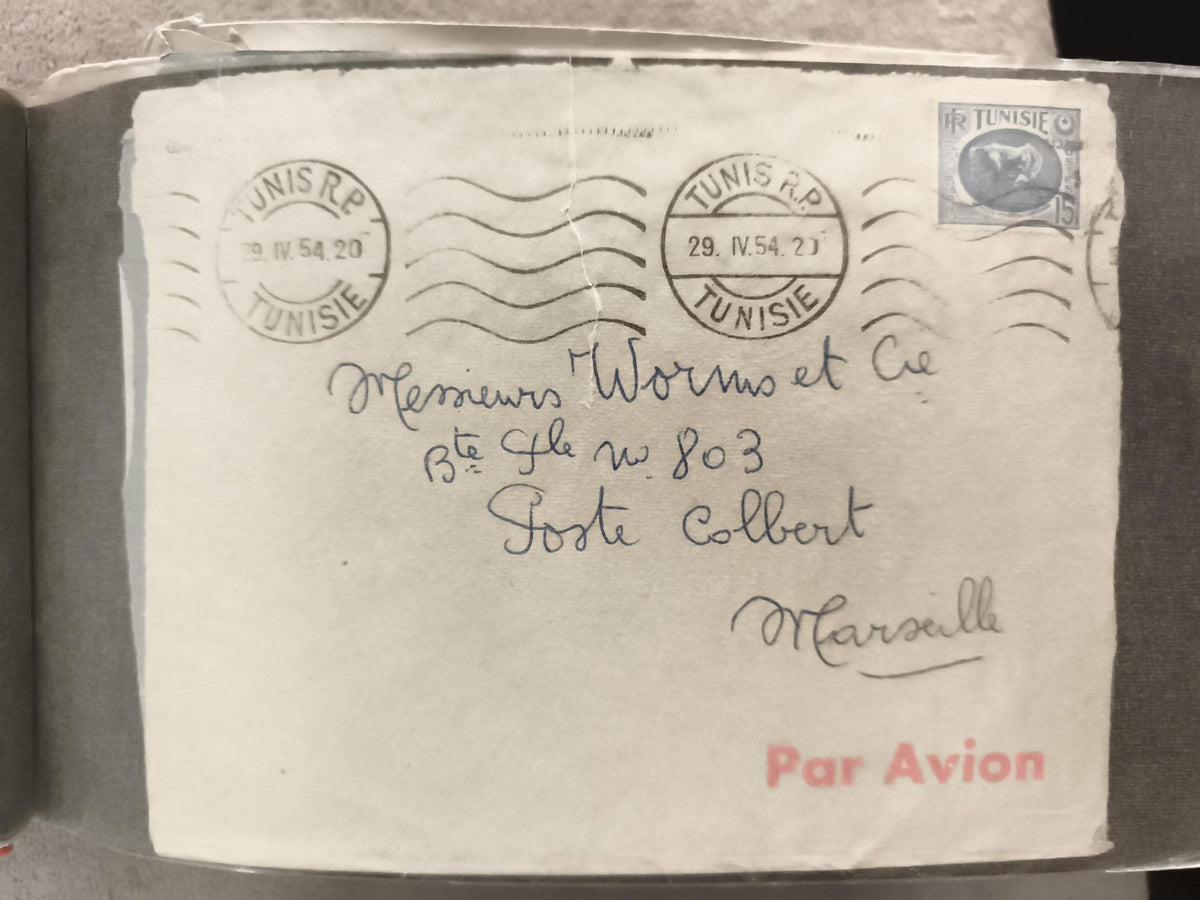 RF TUNISIE
15
TUNIS R.P.
29. IV. 54. 20
TUNISIE
TUNIS R.P.
29. IV. 54. 20
TUNISIE
Messieurs Worms et Cie
Bte Gle no. 803
Poste Colbert
Marseille
Par Avion